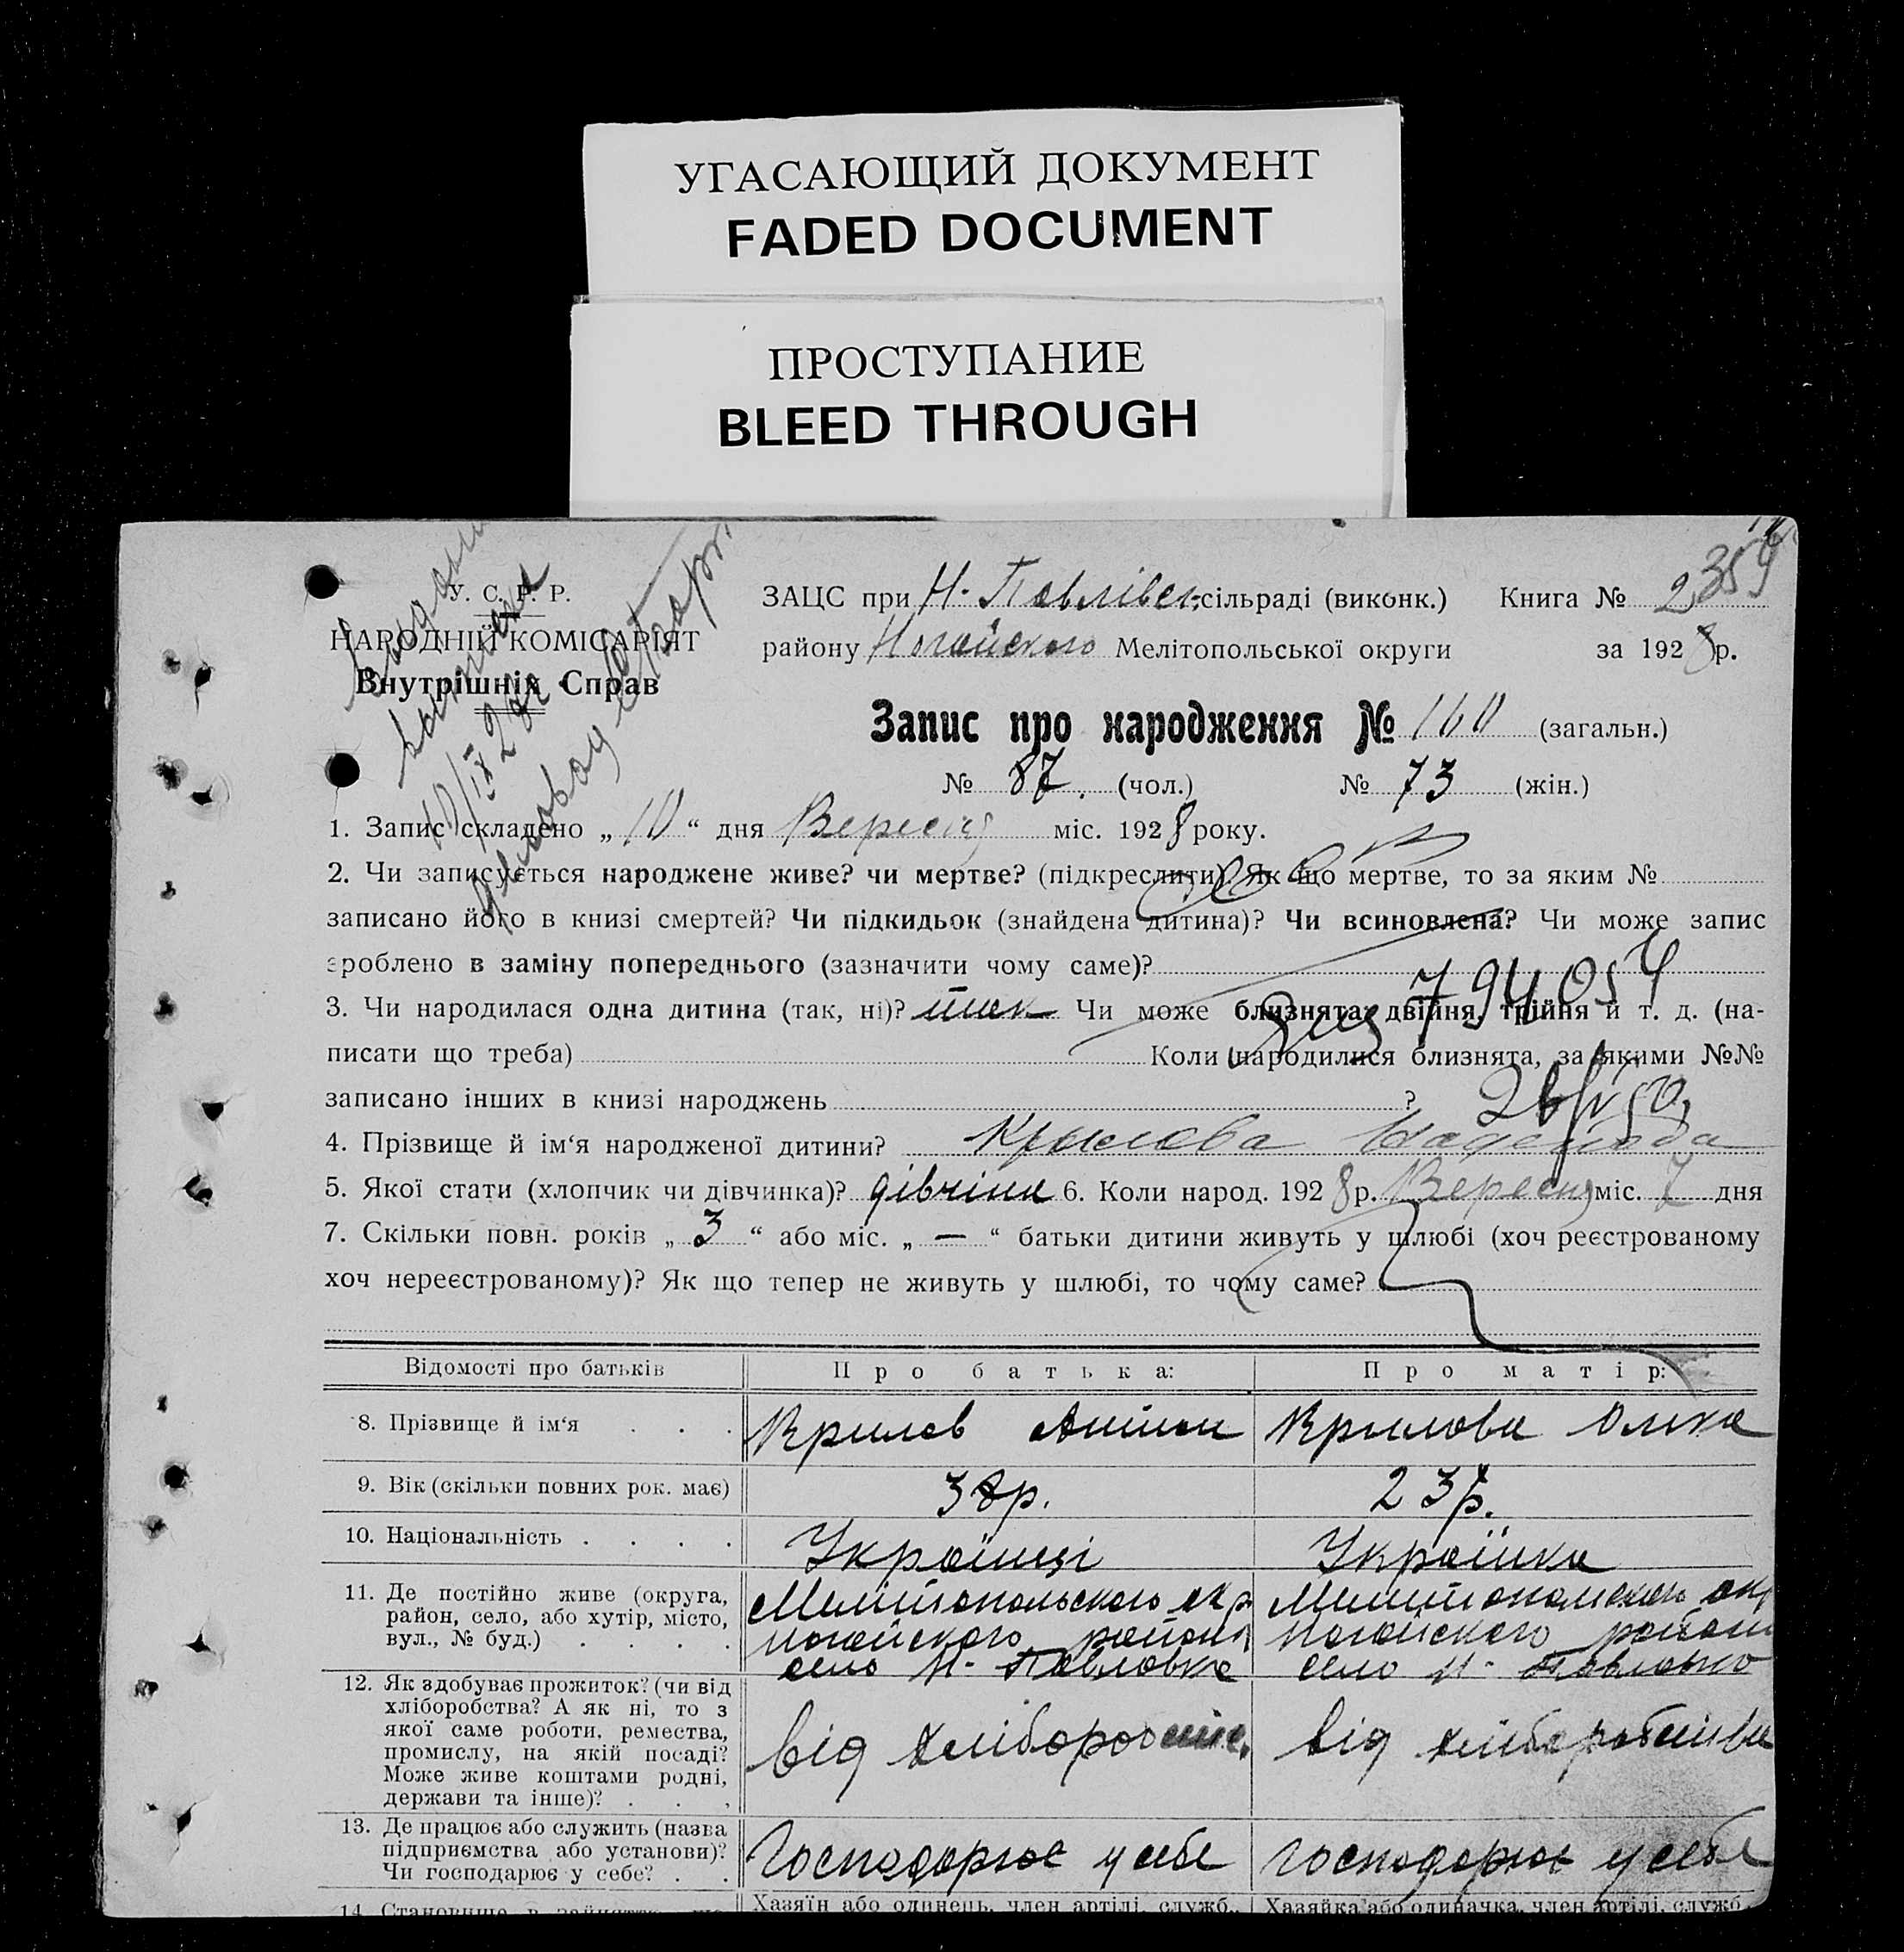 УГАСАЮЩИЙ ДОКУМЕНТ
FADED DOCUMENT
ПРОСТУПАНИЕ
BLEED THROUGH
У. С. Р. Р.
НАРОДНІЙ КОМІСАРІЯТ
Внутрішніх Справ
10/IX 28
ЗАЦС при Н. Павлівск сільраді (виконк.) Книга № 2
359
району Ногайского Мелітопольської округи за 1928 р.
Запис про народження № 160 (загальн.)
№ 87. (чол.) № 73 (жін.)
1. Запис складено „ 10 “ дня Вересня міс. 1928 року.
2. Чи записується народжене живе? чи мертве? (підкреслити). Як що мертве, то за яким №
записано його в книзі смертей? Чи підкидьок (знайдена дитина)? Чи всиновлена? Чи може запис
зроблено в заміну попереднього (зазначити чому саме)?
794054
3. Чи народилася одна дитина (так, ні)? так Чи може близнята: двійня, трійня й т. д. (на-
писати що треба) Коли народилися близнята, за якими №№
записано інших в книзі народжень ?
4. Прізвище й ім‘я народженої дитини? Крылова Надежда
5. Якої стати (хлопчик чи дівчинка)? дівчіна 6. Коли народ. 1928 р. Вересня міс. 7 дня
7. Скільки повн. років „ 3 “ або міс. „ — “ батьки дитини живуть у шлюбі (хоч реєстрованому
хоч нереєстрованому)? Як що тепер не живуть у шлюбі, то чому саме?
Відомості про батьків Про батька: Про матір:
8. Прізвище й ім‘я . . . Крилов Крилова
9. Вік (скільки повних рок. має) 38р. 23р.
10. Національність . . . . Українці Українка
11. Де постійно живе (округа, район, село, або хутір, місто, вул., № буд.) . . . .
Мелітопольского окр Ногайского району село Н- Павловка
Мелитопольского окр Ногайского району село Н- Павловка
12. Як здобуває прожиток? (чи від хліборобства? А як ні, то з якої саме роботи, ремества, промислу, на якій посаді? Може живе коштами родні, держави та інше)? . . .
від хліборобств.
від хліборобства
13. Де працює або служить (назва підприємства або установи)? Чи господарює у себе? . .
Господарює у себе
Господарює у себе
14. Становище в занятті
Хазяїн або одинець, член артілі, служб.,
Хазяйка або одиначка, член артілі, служб.